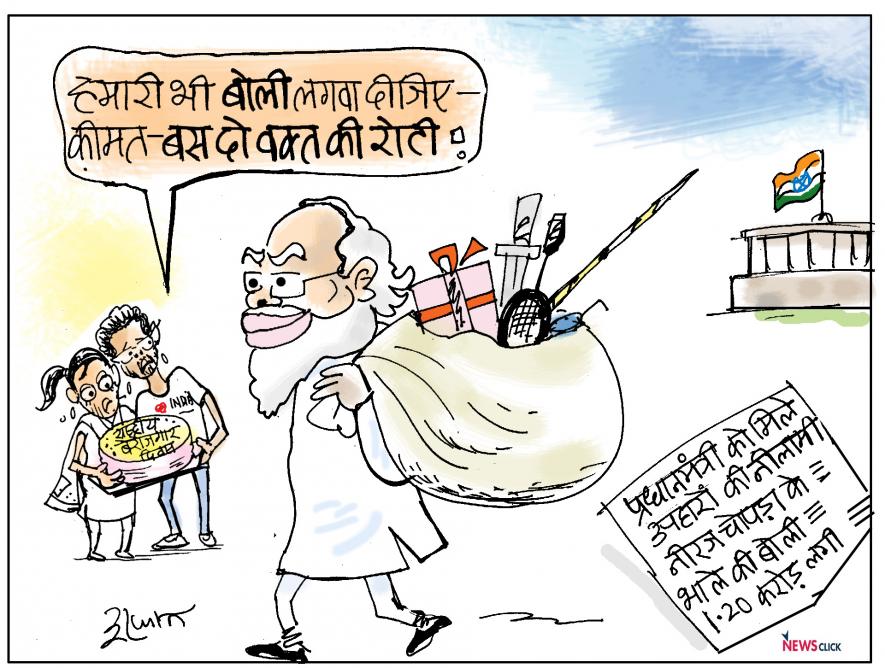 हमारी भी बोली लगवा दीजिए -
कीमत - बस दो वक्त की रोटी !
INDIA
राष्ट्रीय
बेरोजगार
दिवस
प्रधानमंत्री को मिले
उपहारों की नीलामी
नीरज चोपड़ा के
भाले की बोली
1.20 करोड़ लगी
NEWSCLICK